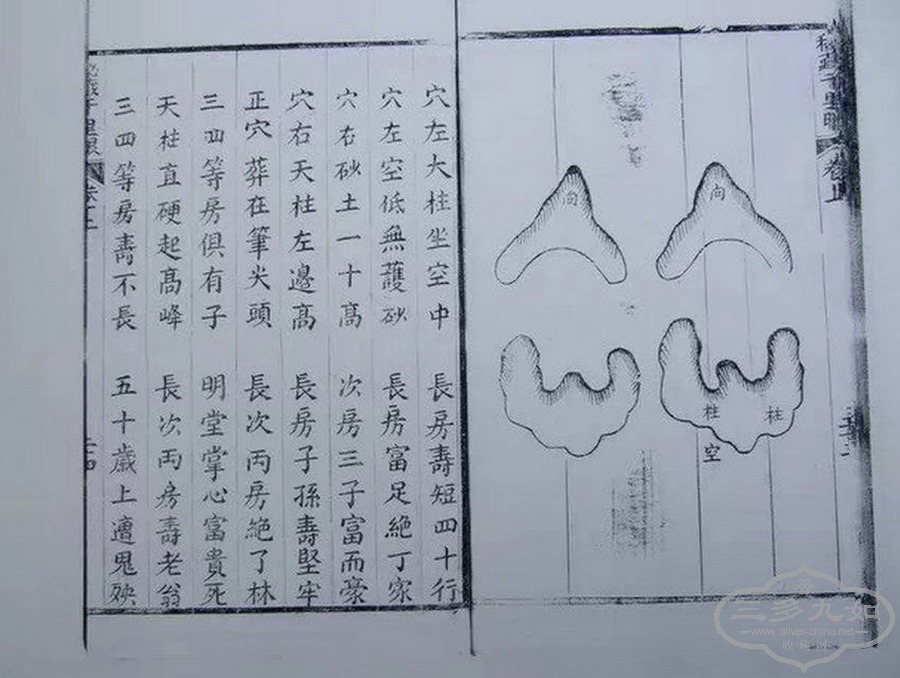 秘藏千里眼 卷上
向
向
柱
柱
空
穴左大柱坐空中 長房壽短四十行
穴左空低無護砂 長房富足絶丁家
穴右砂土一十高 次房三子富而豪
穴右天柱左邊高 長房子孫壽堅牢
正穴葬在筆尖頭 長次丙房絶了林
三四等房俱有子 明堂掌心富貴死
天柱直硬起高峰 長次丙房壽老翁
三四等房壽不長 五十歲上遭鬼殃
千里眼
二十四
三多九如
www.silver-china.net
收藏网